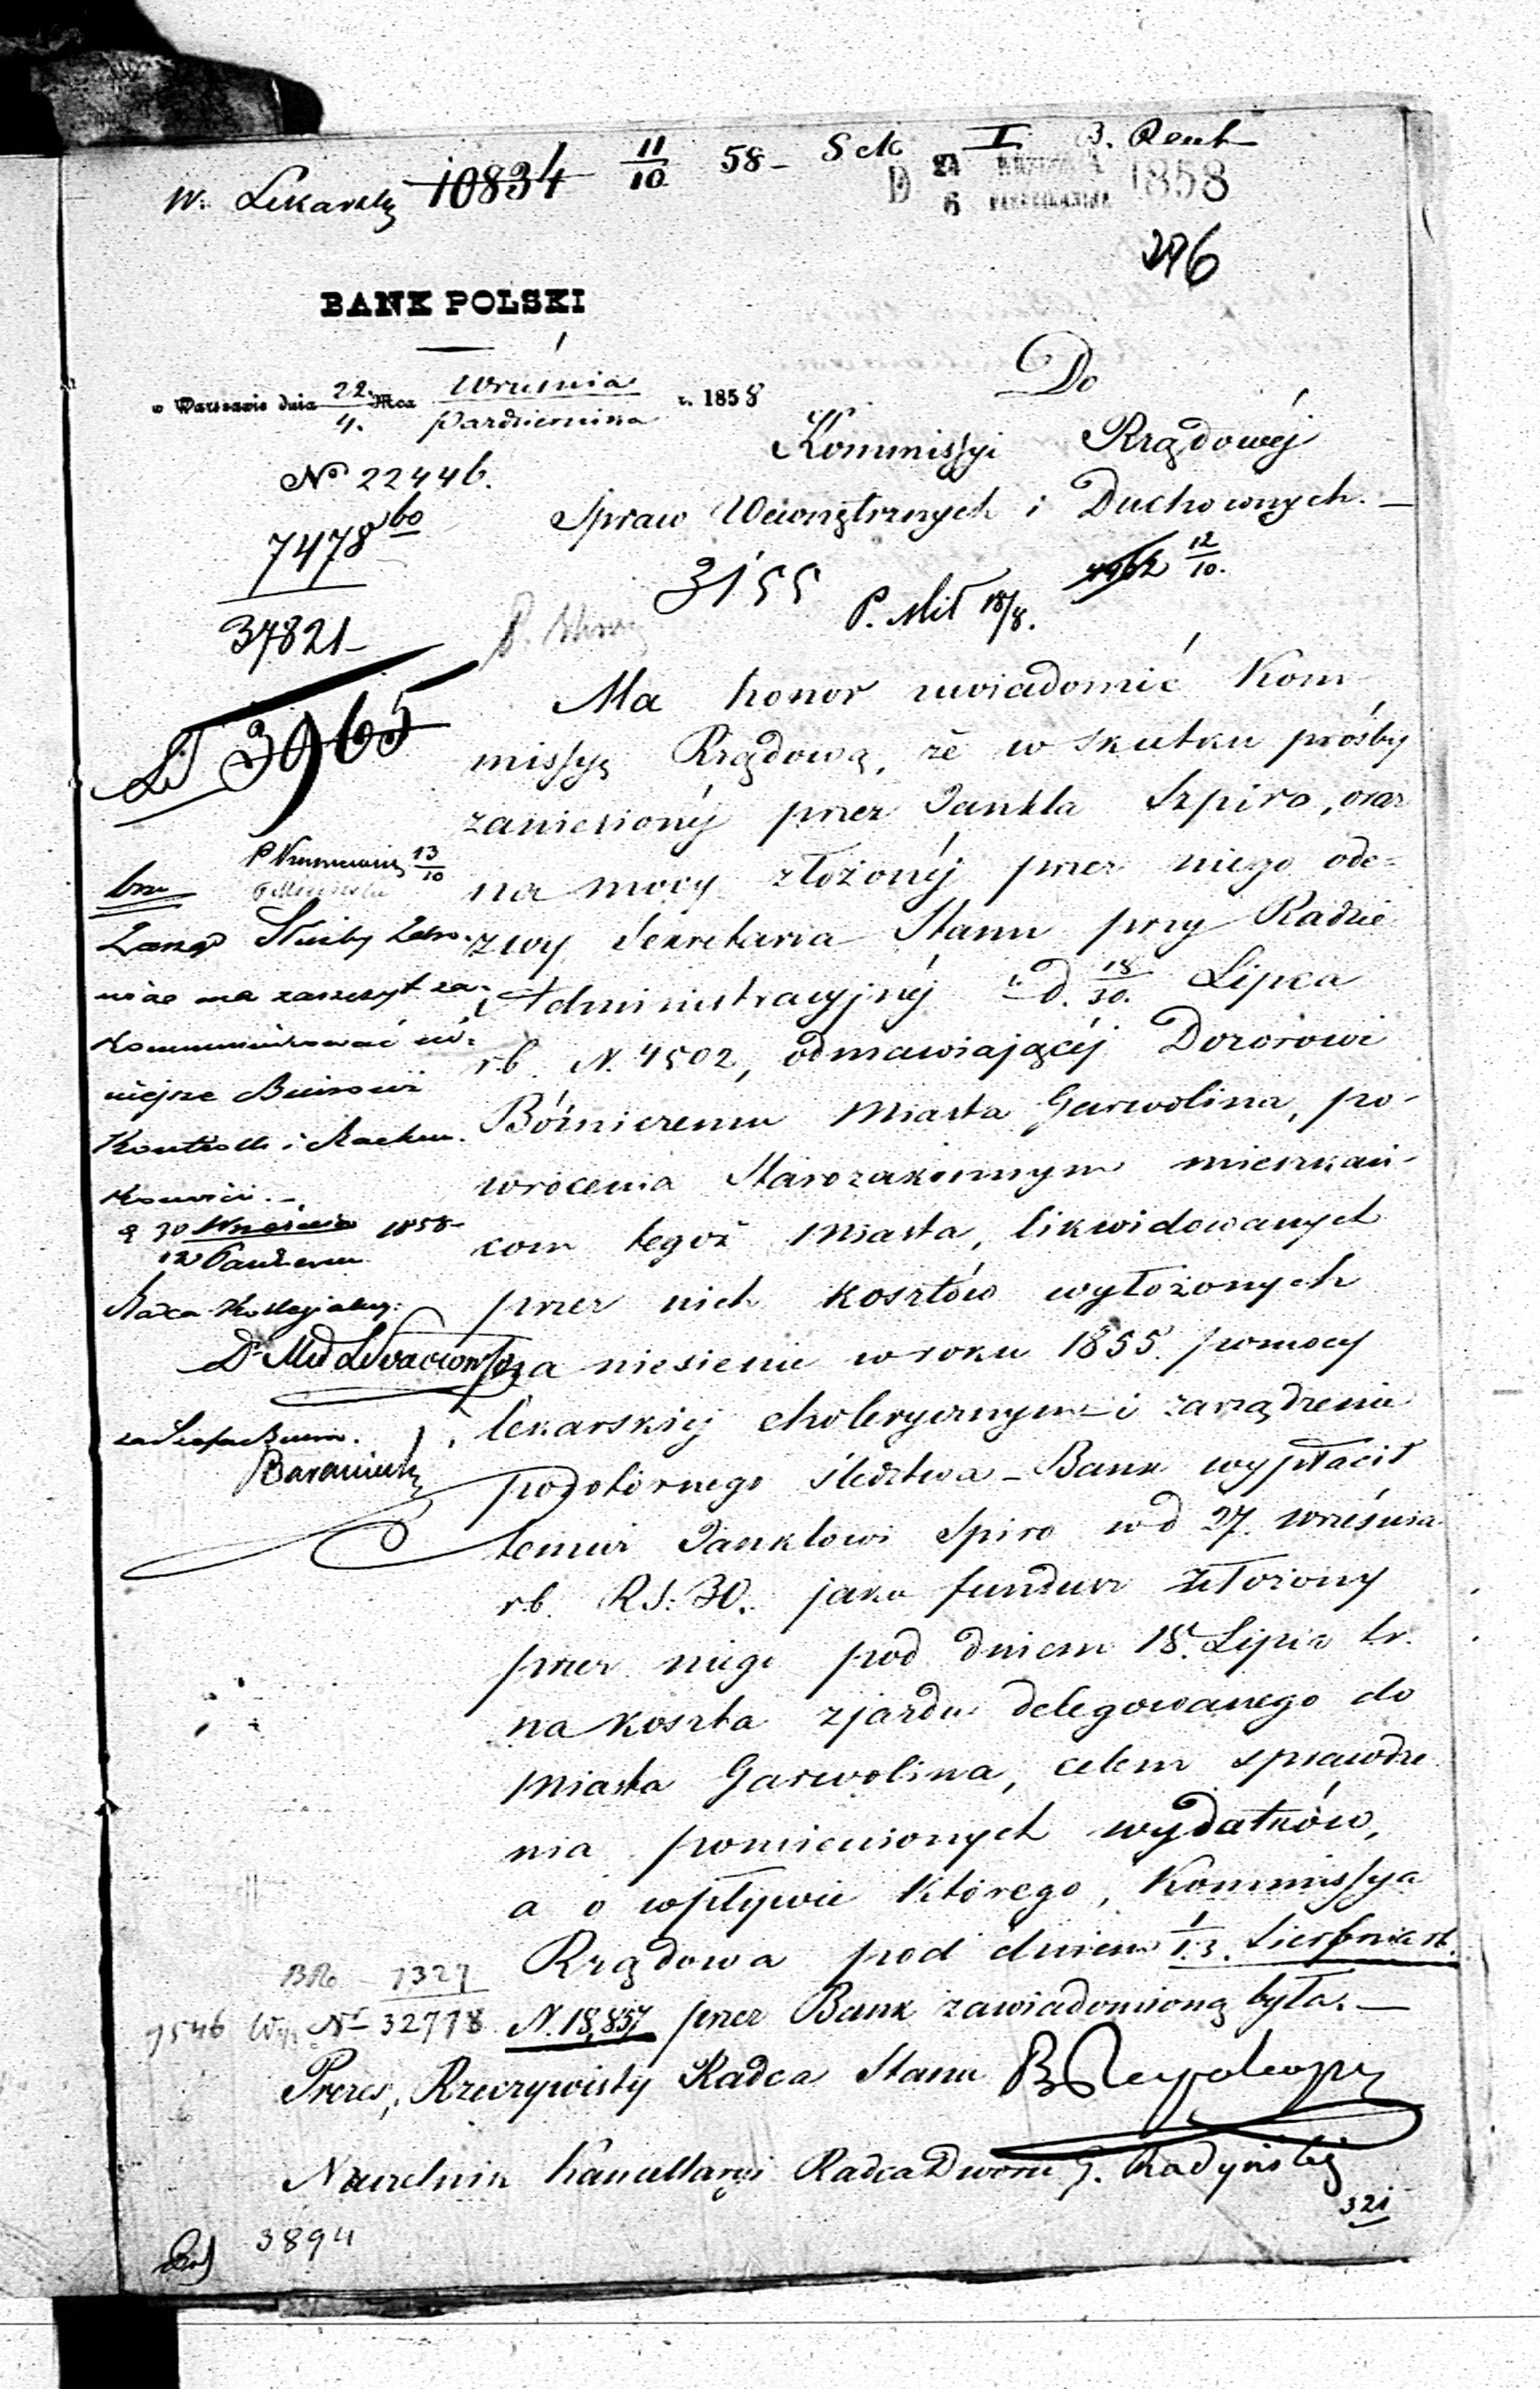 W. Lekarski 10834 11/10 58 - Sek I
D 24 / 6 1858
296
BANK POLSKI
w Warszawie dnia 22/4. Mca Września/Października r. 1858
Do
Kommissyi Rządowéj
Spraw Wewnętrznych i Duchownych. -
No 22446.
7478 60
37821 -
3155
P. Mił 18/8.
12/10.
LiT 3965
Ma honor uwiadomić Kom
missyę Rządową, że w skutku próśby
zaniesionéj przez Jankla Szpiro, oraz
na mocy złożonéj przez niego ode=
zwy Sekretarza Stanu przy Radzie
Administracyjnéj z d. 18/30. Lipca
r.b. N. 4502, odmawiającéj Dozorowi
Bóżniczemu Miasta Garwolina, po-
wrócenia Starozakonnym mieszkań-
com tegoż Miasta, likwidowanych
przez nich kosztów wyłożonych
za niesienie w roku 1855. pomocy
lekarskiéj cholerycznym i zarządzenie
powtórnego śledztwa - Bank wypłacił
temuż Janklowi Spiro w d 27. września
r.b. R.S. 30. jako fundusz złożony
przez niego pod dniem 18. Lipca br.
na koszta zjazdu delegowanego do
Miasta Garwolina, celem sprawdze
nia pomienionych wydatków,
a o wpływie którego, Kommissya
Rządowa pod dniem 1/13. Sierpnia rb.
N. 18,837 przez Bank zawiadomioną była. -
Prezes, Rzeczywisty Radca Stanu
Naczelnik Kancellaryi Radca Dworu G. Radyński
13/10
Zarząd Służby Zdro-
wia ma zaszczyt za-
kommunikować ni-
niejsze Biurowi
Kontrolli i Rachun-
kowości. -
d 30 Września 1858
12 Październ
Radca Kollegialny:
Dr Md
za Szefa Biura.
Baraniecki
1327
9546 Wyż No 32778
3894
321